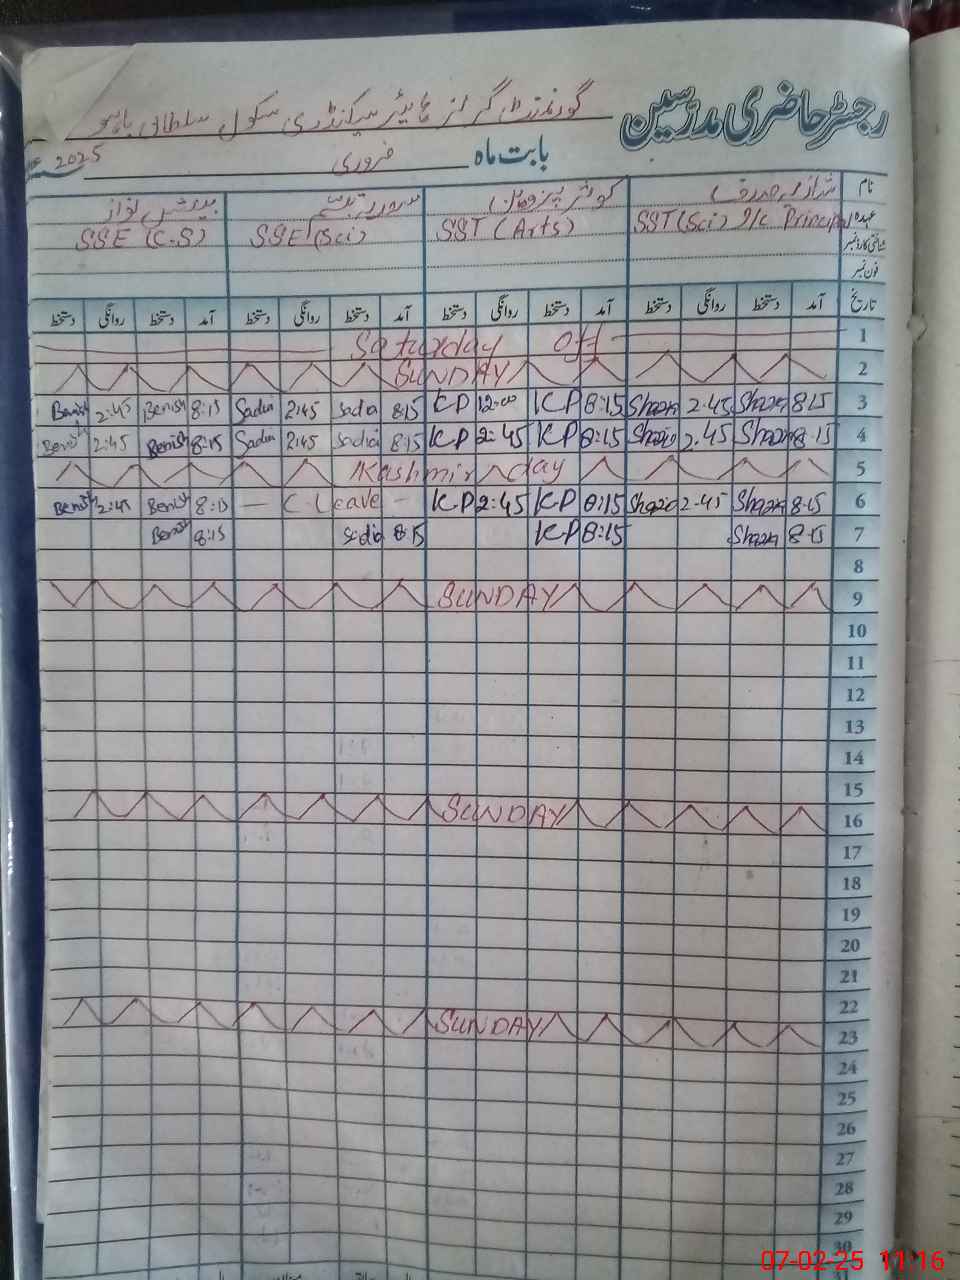 رجسٹر حاضری مدرسین گورنمنٹ گرلز ہائیر سیکنڈری سکول سلطان باہو
بابت ماہ فروری 2025
نام
عہدہ SST (Sci) I/c Principal SST (Arts) SSE (Sci) SSE (C.S)
شناختی کارڈ نمبر
فون نمبر
تاریخ آمد دستخط روانگی دستخط آمد دستخط روانگی دستخط آمد دستخط روانگی دستخط آمد دستخط روانگی دستخط
Saturday off 1
SUNDAY 2
Benish 2:45 Benish 8:15 Sadia 2:45 Sadia 8:15 KP 12:00 KP 8:15 Shazia 2.45 Shazia 8.15 3
Benish 2:45 Benish 8:15 Sadia 2:45 Sadia 8:15 KP 2:45 KP 8:15 Shazia 2.45 Shazia 8-15 4
Kashmir day 5
Benish 2:45 Benish 8:15 — C. Leave — KP 2:45 KP 8:15 Shazia 2-45 Shazia 8-15 6
Benish 8:15 Sadia 8:15 KP 8:15 Shazia 8-15 7
8
SUNDAY 9
10
11
12
13
14
15
SUNDAY 16
17
18
19
20
21
22
SUNDAY 23
24
25
26
27
28
29
30
07-02-25 11:16